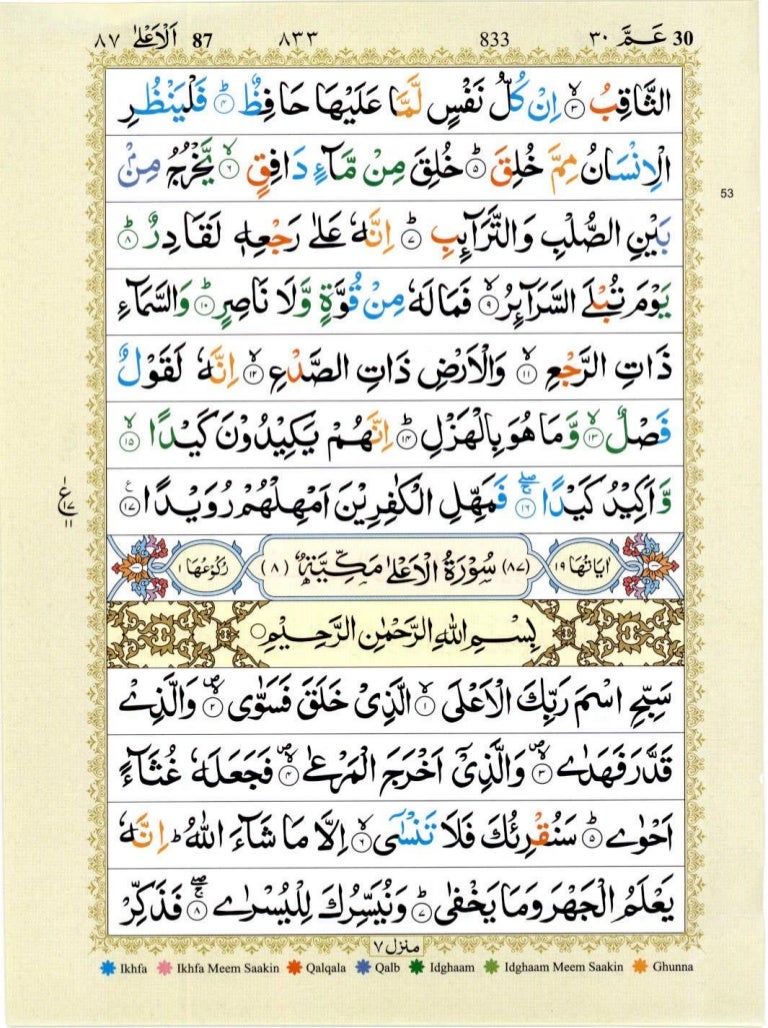 ٨٧ اَلْاَعْلٰى 87 ٨٣٣ 833 ٣٠ عَمَّ 30
الثَّاقِبُ ﴿٣﴾ اِنْ كُلُّ نَفْسٍ لَّمَّا عَلَيْهَا حَافِظٌ ﴿٤﴾ فَلْيَنْظُرِ
الْاِنْسَانُ مِمَّ خُلِقَ ﴿٥﴾ خُلِقَ مِنْ مَّآءٍ دَافِقٍ ﴿٦﴾ يَّخْرُجُ مِنْۢ
بَيْنِ الصُّلْبِ وَالتَّرَآئِبِ ﴿٧﴾ اِنَّهٗ عَلٰى رَجْعِهٖ لَقَادِرٌ ﴿٨﴾
53
يَوْمَ تُبْلَى السَّرَآئِرُ ﴿٩﴾ فَمَا لَهٗ مِنْ قُوَّةٍ وَّلَا نَاصِرٍ ﴿١٠﴾ وَالسَّمَآءِ
ذَاتِ الرَّجْعِ ﴿١١﴾ وَالْاَرْضِ ذَاتِ الصَّدْعِ ﴿١٢﴾ اِنَّهٗ لَقَوْلٌ
فَصْلٌ ﴿١٣﴾ وَّمَا هُوَ بِالْهَزْلِ ﴿١٤﴾ اِنَّهُمْ يَكِيْدُوْنَ كَيْدًا ﴿١٥﴾
وَّاَكِيْدُ كَيْدًا ﴿١٦﴾ فَمَهِّلِ الْكٰفِرِيْنَ اَمْهِلْهُمْ رُوَيْدًا ﴿١٧﴾
ع ١٧ ١١
اٰيَاتُهَا ١٩ (٨٧) سُوْرَةُ الْاَعْلٰى مَكِّيَّةٌ (٨) رُكُوْعُهَا ١
بِسْمِ اللّٰهِ الرَّحْمٰنِ الرَّحِيْمِ
سَبِّحِ اسْمَ رَبِّكَ الْاَعْلَى ﴿١﴾ الَّذِيْ خَلَقَ فَسَوّٰى ﴿٢﴾ وَالَّذِيْ
قَدَّرَ فَهَدٰى ﴿٣﴾ وَالَّذِيْٓ اَخْرَجَ الْمَرْعٰى ﴿٤﴾ فَجَعَلَهٗ غُثَآءً
اَحْوٰى ﴿٥﴾ سَنُقْرِئُكَ فَلَا تَنْسٰٓى ﴿٦﴾ اِلَّا مَا شَآءَ اللّٰهُ ؕ اِنَّهٗ
يَعْلَمُ الْجَهْرَ وَمَا يَخْفٰى ﴿٧﴾ وَنُيَسِّرُكَ لِلْيُسْرٰى ﴿٨﴾ فَذَكِّرْ
منزل ٧
Ikhfa Ikhfa Meem Saakin Qalqala Qalb Idghaam Idghaam Meem Saakin Ghunna